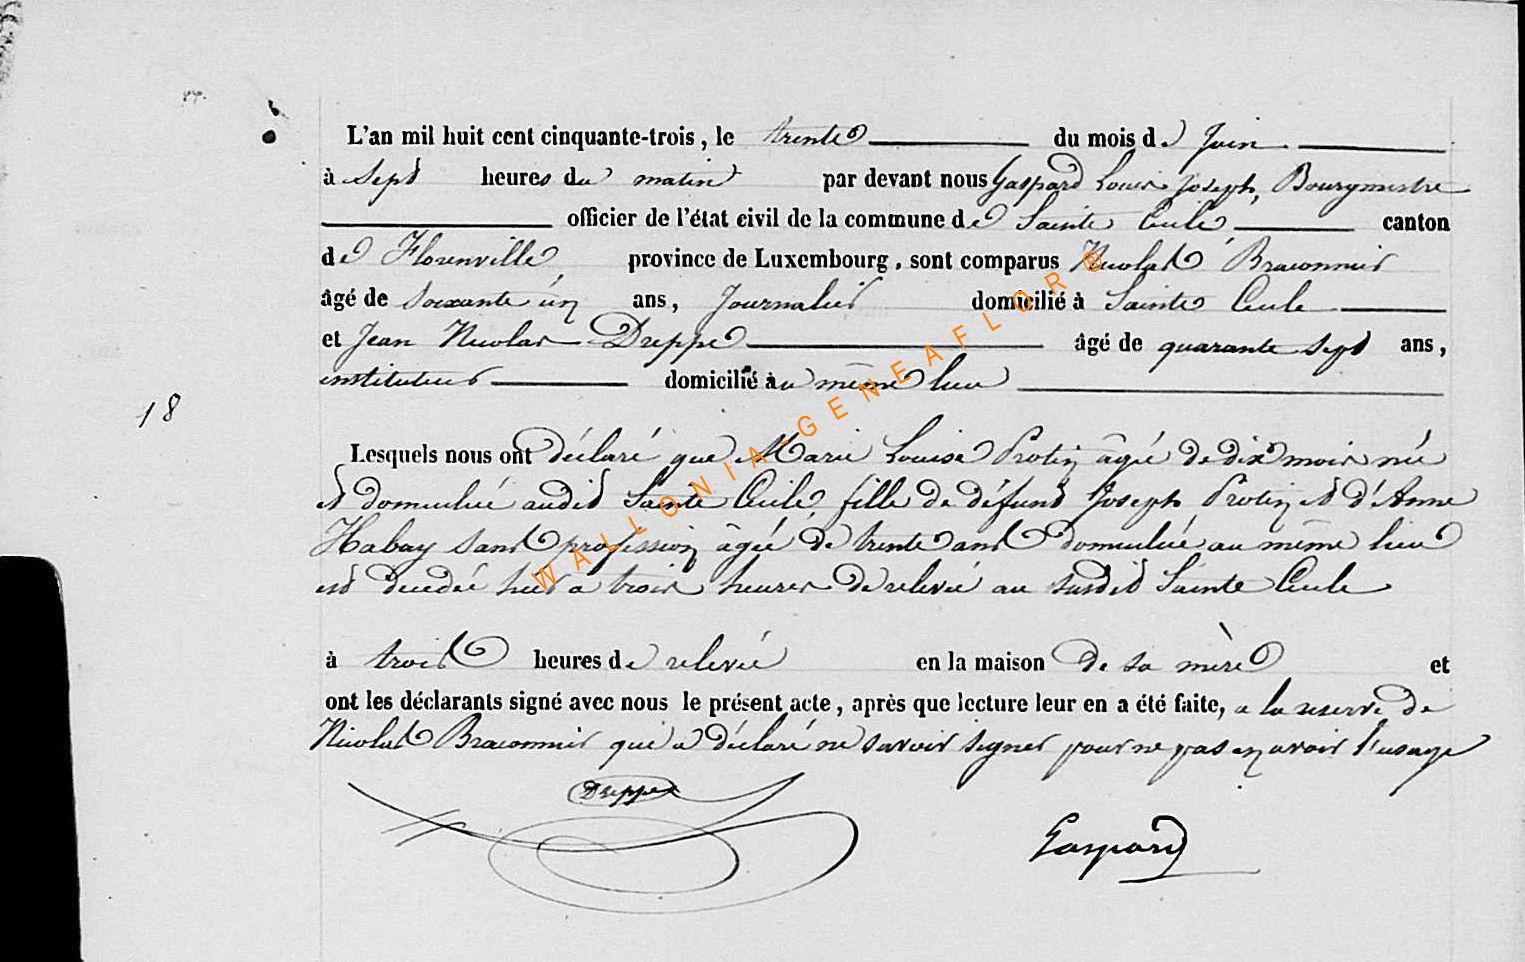 L'an mil huit cent cinquante-trois, le trente du mois de Juin
à Sept heures du matin par devant nous Gaspard Louis Joseph, Bourgmestre
officier de l'état civil de la commune de Sainte Cécile canton
de Florenville, province de Luxembourg, sont comparus Nicolas Braconnier
âgé de soixante un ans, Journalier domicilié à Sainte Cécile
et Jean Nicolas Dreppe âgé de quarante sept ans,
instituteur domicilié au même lieu
18
Lesquels nous ont déclaré que Marie Louise Protin âgée de dix mois née
et domiciliée audit Sainte Cécile, fille de défunt Joseph Protin et d'Anne
Habay sans profession âgée de trente ans domiciliée au même lieu
est décédée hier a trois heures de relevée au susdit Sainte Cécile
à trois heures de relevée en la maison de sa mère et
ont les déclarants signé avec nous le présent acte, après que lecture leur en a été faite, a la reserve de
Nicolas Braconnier qui a déclaré ne savoir signer pour ne pas en avoir l'usage
Dreppe
Gaspard
WALLONIA-GENEAFLORE